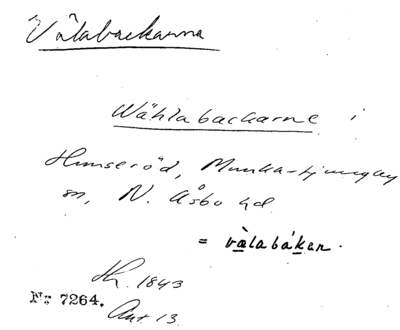 Välabackarna
Wähla backarne i
Hunseröd, Munka-Ljungby
sn, N. Åsbo hd
= välabákan.
Th. 1843
Nr 7264. Ant. 13.